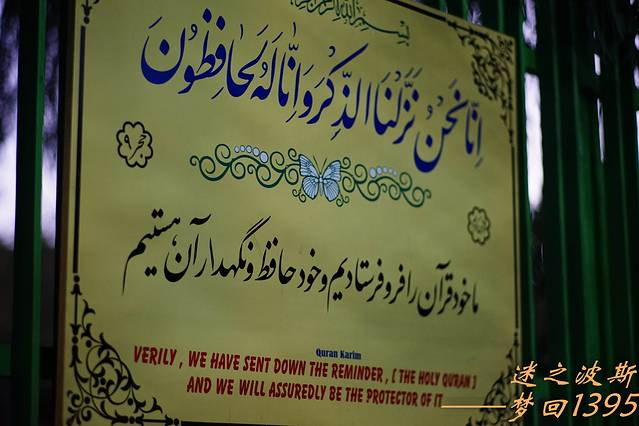 بسم الله الرحمن الرحیم
اِنّا نَحْنُ نَزَّلْنَا الذِّكْرَ وَاِنّا لَهُ لَحافِظُونَ
حجر ۹
ما خود قرآن را فرو فرستادیم و خود حافظ و نگهدار آن هستیم
Quran Karim
VERILY , WE HAVE SENT DOWN THE REMINDER , [ THE HOLY QURAN ]
AND WE WILL ASSUREDLY BE THE PROTECTOR OF IT
迷之波斯
——梦回1395